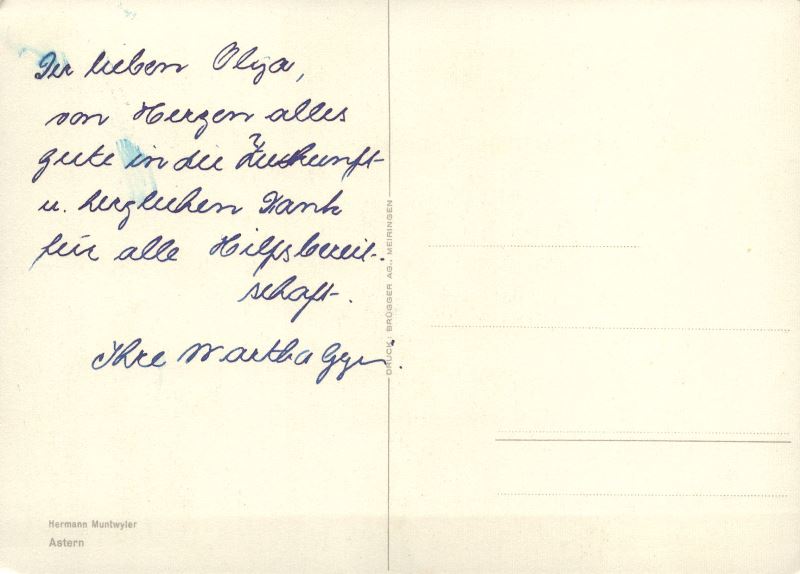 Der lieben Olga,
von Herzen alles
gute in die Zukunft
u. herzlichen Dank
für alle Hilfsbereit-
schaft.
Ihre Martha
DRUCK: BRÜGGER AG., MEIRINGEN
Hermann Muntwyler
Astern